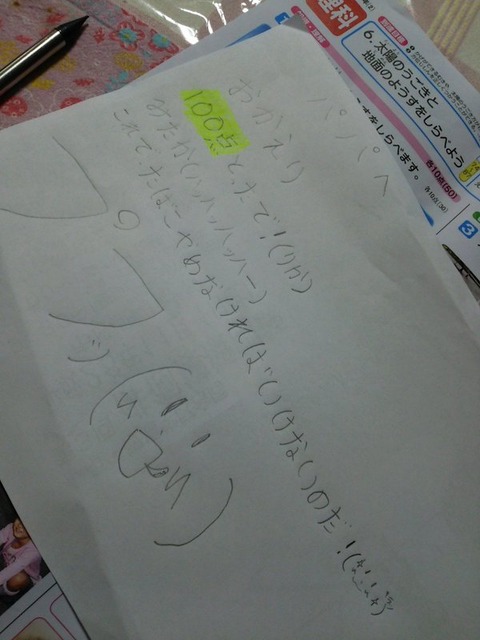 パパへ
おかえり
100点とたで!(りか)
みたか(ハッハッハッハー)
これで、たばこやめなければいけないのだ!
の
理科
6.太陽のうごきと
地面のようすをしらべよう
すをしらべます。
各10点(50)
3